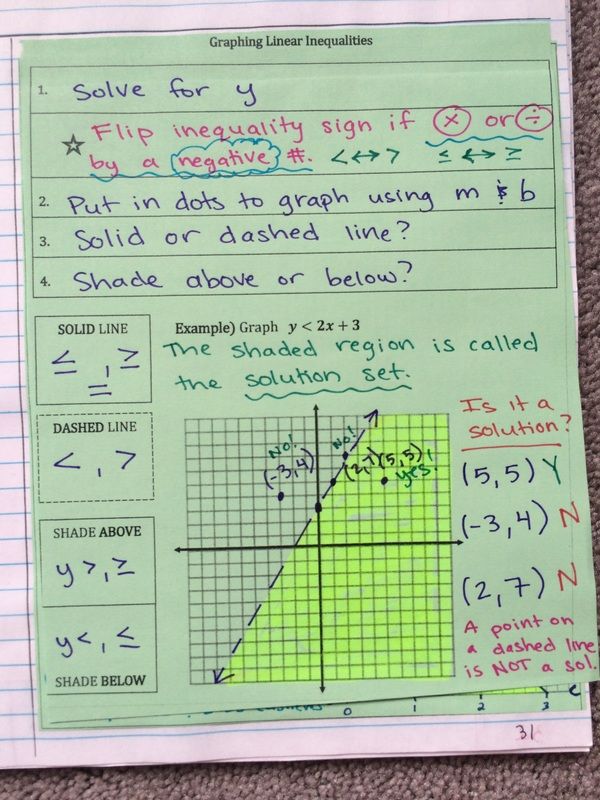 Graphing Linear Inequalities
1. Solve for y
☆ Flip inequality sign if ⊗ or ÷
by a negative #. < ↔ > ≤ ↔ ≥
2. Put in dots to graph using m & b
3. Solid or dashed line?
4. Shade above or below?
SOLID LINE
≤ , ≥
=
DASHED LINE
< , >
SHADE ABOVE
y >, ≥
y <, ≤
SHADE BELOW
Example) Graph y < 2x + 3
The shaded region is called
the solution set.
No!
(-3,4)
No!
(2,7)
(5,5)
yes!
Is it a
solution?
(5,5) Y
(-3,4) N
(2,7) N
A point on
a dashed line
is NOT a sol.
0 1 2 3
31